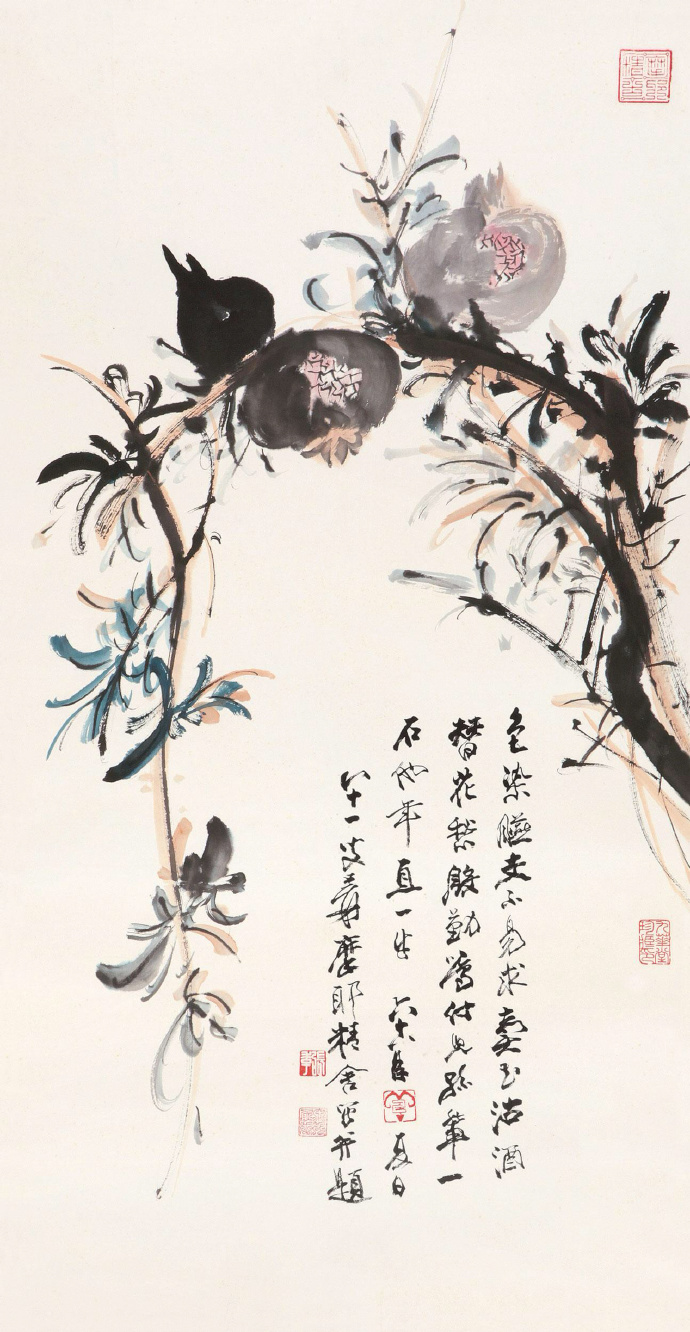 色染臙支不易求玉沽酒
替花愁殷勤為付兒孫輩一
石他年直一牛 六十八年 夏日
八十一叟爰摩耶精舍寫并題